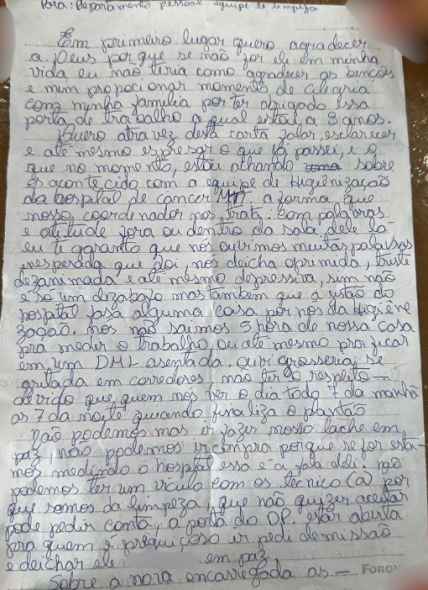 Para: Departamento pessoal equipe de limpeza
Em primeiro lugar quero agradecer
a Deus por que se não for ele em minha
vida eu não teria como agradecer as bençõs
e mim proporcionar momento de alegria
com minha familia por ter abrigado essa
porta de trabalho a qual estou a 3 anos.
Quero atravez desta carta falar, esclarecer
e até mesmo espresar o que já passei, e o
que no momento, estou achando sobre
os acontecido com a equipe de Higienização
da hospital de câncer MT, a forma que
nosso coordenador nos trata. com palavras
e atitude fora ou dentro da sala dele lá
eu ti garanto que nós ouvimos muitas palavras
inesperada que doi, nos deicha oprimida, triste
dezanimada e até mesmo depressiva, sim não
é só um dizabafo mas também que a jestão do
hospital fasa alguma coisa por nós da Higiene
zação. nos não saimos 5 hora de nossa casa
pra medir o trabalho, ou até mesmo pra ficar
em um DML asentada, ouvi grosseria, se
gritada em corredores, não ter o respeito
devido que, quem nos ver o dia todo 7 da manhã
as 7 da noite quando finaliza o plantão
Não podemos mas ir fazer nosso lache em
paz, não podemos ir cimpra porque se for esta-
mos medindo o hospital essa é a fala deli. não
podemos ter um viculo com os técnico (a) por
que somos da limpeza, que não quizer aceitar
pode pedir conta, a porta do DP. estar aberta
pra quem é preguiçoso ir pedi demissão
e deichar eli em paz
Sobre a nova encarregada as —
FORON